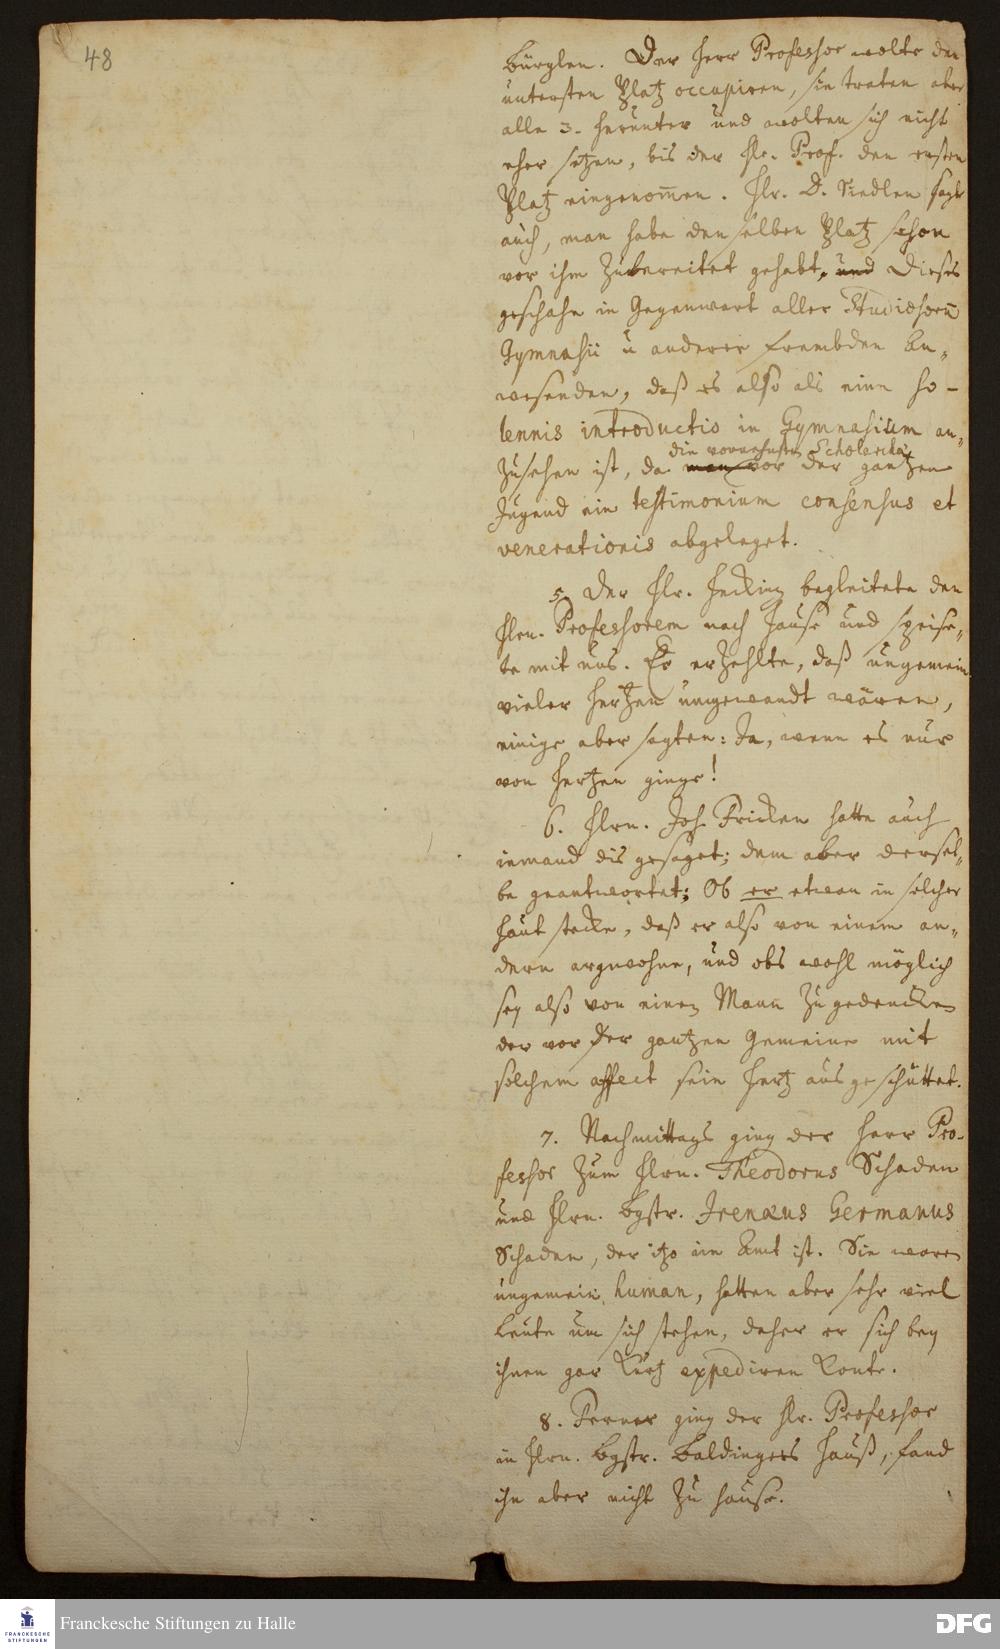 48
bürglen. Der Herr Professor wolte den
untersten Platz occupiren, sie traten aber
alle 3. herunter und wolten sich nicht
eher setzen, bis der Hr. Prof. den ersten
Platz eingenom̄en. Hr. D. Siedlen sagte
auch, man habe denselben Platz schon
vor ihm zubereitet gehabt, und Dieses
geschahe in Gegenwart aller Studiosorū
Gymnasii u anderer frembden An-
wesenden, daß es also als eine so-
lennis introductio in Gymnasium an-
die vornehmsten Scholarchae
zusehen ist, da man vor der gantzen
Jugend ein testimonium consensus et
venerationis abgeleget.
5. Der Hr. Hecking begleitete den
Hrn. Professorem nach Hause und speise-
te mit uns. Er erzehlte, daß ungemein
vieler Hertzen umgewandt wären,
einige aber sagten: Ja, wenn es nur
von Hertzen ginge!
6. Hrn. Joh. Fricken hatte auch
iemand dis gesaget; dem aber dersel-
be geantwortet: Ob er etwan in solcher
Haut stecke, daß er also von einem an-
dern argwohne, und obs wohl möglich
sey also von einen Mann zu gedencken
der vor der gantzen Gemeine mit
solchem affect sein Hertz ausgeschüttet.
7. Nachmittags ging der Herr Pro-
fessor zum Hrn. Theodorus Schaden
und Hrn. Bgstr. Irenæus Germanus
Schaden, der itzo im Amt ist. Sie waren
ungemein human, hatten aber sehr viel
Leute um sich stehen, daher er sich bey
ihnen gar kurtz expediren konte.
8. Ferner ging der Hr. Professor
in Hrn. Bgstr. Baldingers Hauß, fand
ihn aber nicht zu Hause.
FRANCKESCHE
STIFTUNGEN
Franckesche Stiftungen zu Halle
DFG